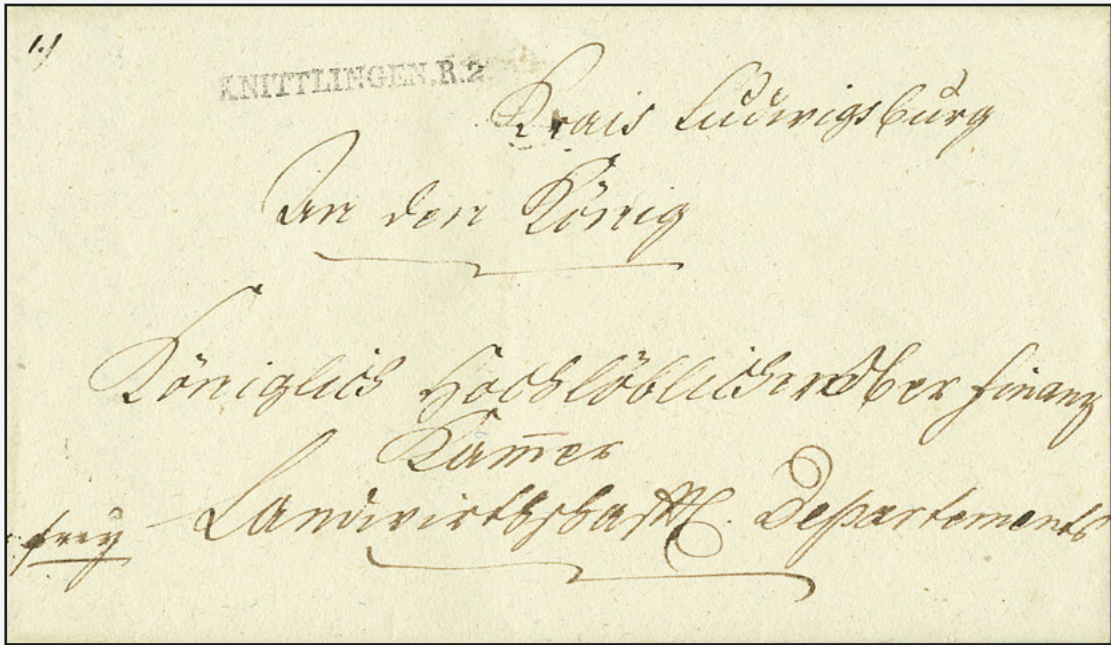 1.)
KNITTLINGEN.R.2.
Krais Ludwigsburg
An den König
Königlich Hochlöblicher Ober Finanz
Kam̅er
frey Landwirthschaftl. Departements